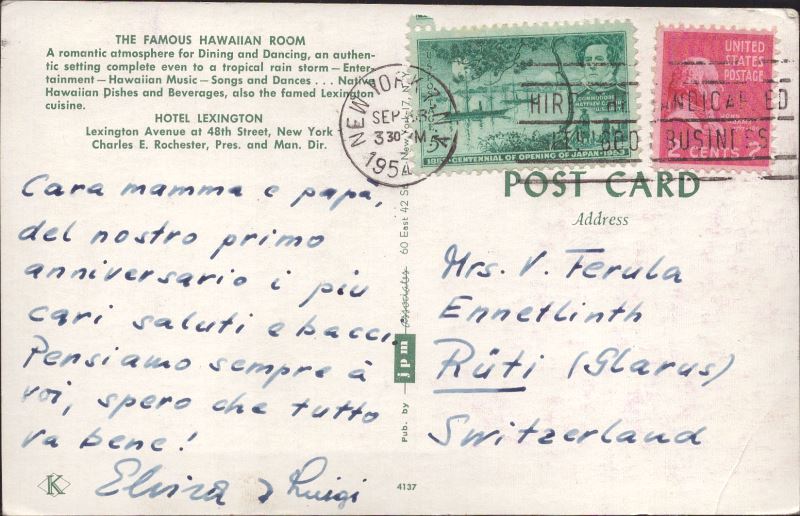 THE FAMOUS HAWAIIAN ROOM
A romantic atmosphere for Dining and Dancing, an authen-
tic setting complete even to a tropical rain storm — Enter-
tainment — Hawaiian Music — Songs and Dances . . . Native
Hawaiian Dishes and Beverages, also the famed Lexington
cuisine.
HOTEL LEXINGTON
Lexington Avenue at 48th Street, New York
Charles E. Rochester, Pres. and Man. Dir.
Cara mamma e papà,
del nostro primo
anniversario i più
cari saluti e bacci.
Pensiamo sempre à
voi, spero che tutto
va bene!
Elvira & Luigi
K
4137
Pub. by jpm associates 60 East 42
NEW YORK
SEP
3 30 PM
1954
5¢
1853-CENTENNIAL OF OPENING OF JAPAN-1953
HIRE
BUSINESS
UNITED
STATES
POSTAGE
2 CENTS 2
POST CARD
Address
Mrs. V. Ferula
Ennetlinth
Rüti (Glarus)
Switzerland